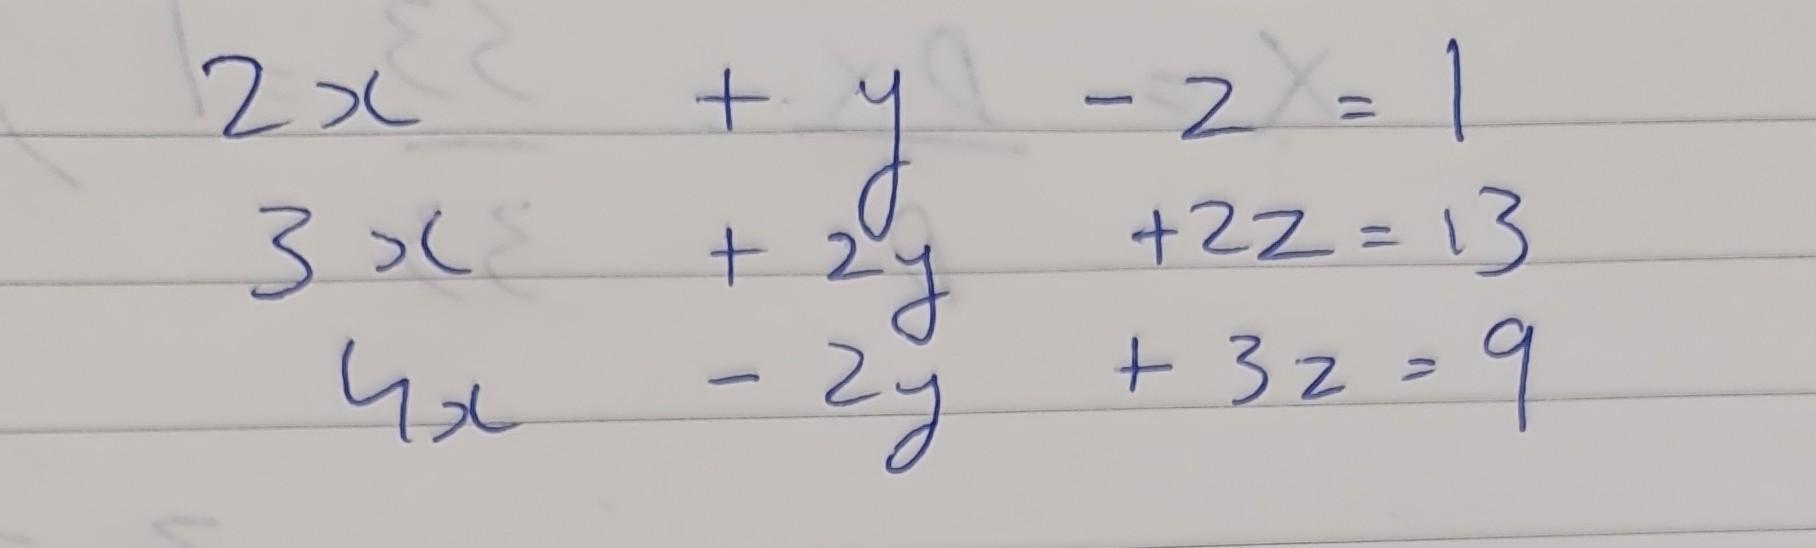 2x + y - z = 1
3x + 2y + 2z = 13
4x - 2y + 3z = 9